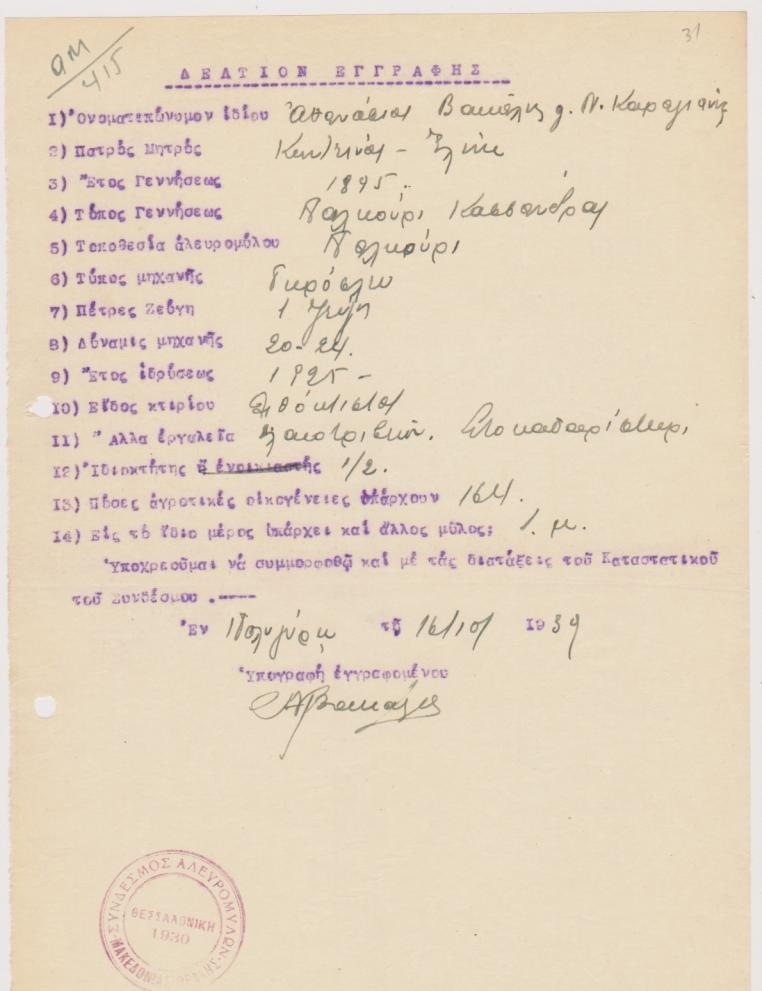 31
ΑΜ 415
ΔΕΛΤΙΟΝ ΕΓΓΡΑΦΗΣ
1) Ὀνοματεπώνυμον ἰδίου Ἀθανάσιος Βακάλης & Ν. Καραγιάννης
2) Πατρὸς Μητρὸς Κων/τῖνος - Ἑλένη
3) Ἔτος Γεννήσεως 1895.
4) Τόπος Γεννήσεως Βαλκούρι Κασσάνδρας
5) Τοποθεσία ἀλευρομύλου
6) Τύπος μηχανῆς
7) Πέτρες Ζεύγη 1 ζεύγη
8) Δύναμις μηχανῆς 20-24.
9) Ἔτος ἱδρύσεως 1925 -
10) Εἶδος κτιρίου
11) Ἄλλα ἐργαλεῖα
12) Ἰδιοκτήτης ἢ ἐνοικιαστής 1/2.
13) Πόσες ἀγροτικές οἰκογένειες ὑπάρχουν 164.
14) Εἰς τὸ ἴδιο μέρος ὑπάρχει καὶ ἄλλος μῦλος; 1. μ.
Ὑποχρεοῦμαι νὰ συμμορφοθῶ καὶ μὲ τὰς διατάξεις τοῦ Καταστατικοῦ
τοῦ Συνδέσμου .----
Ἐν Πολυγύρῳ τῇ 16/10/ 1939
Ὑπογραφὴ ἐγγραφομένου
ΑΒακάλης
ΣΥΝΔΕΣΜΟΣ ΑΛΕΥΡΟΜΥΛΩΝ
ΘΕΣΣΑΛΟΝΙΚΗ
1930
ΜΑΚΕΔΟΝΙΑΣ